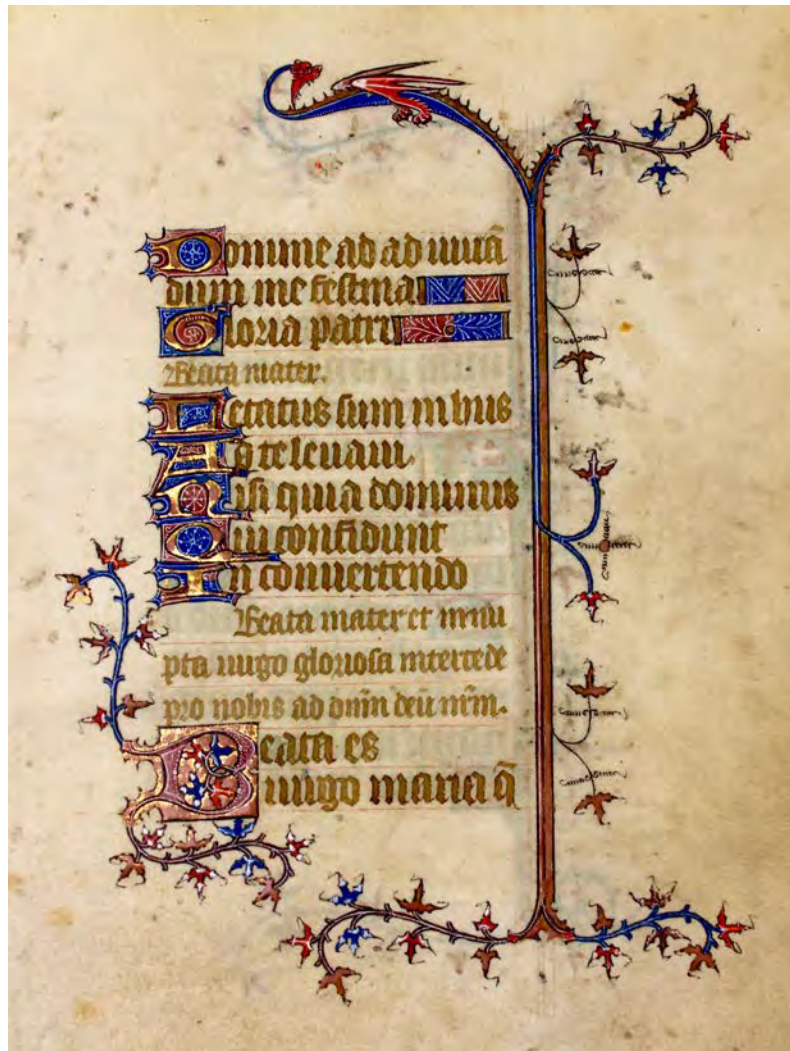 Domine ad ad iuuā
dum me festina
Gloria patri
Beata mater.
Letatus sum in hiis
Ad te leuaui
Nisi quia dominus
Qui confidunt
In conuertendo
Beata mater et innu
pta uirgo gloriosa intercede
pro nobis ad dn̄m deū nr̄m.
Beata es
uirgo maria q̄